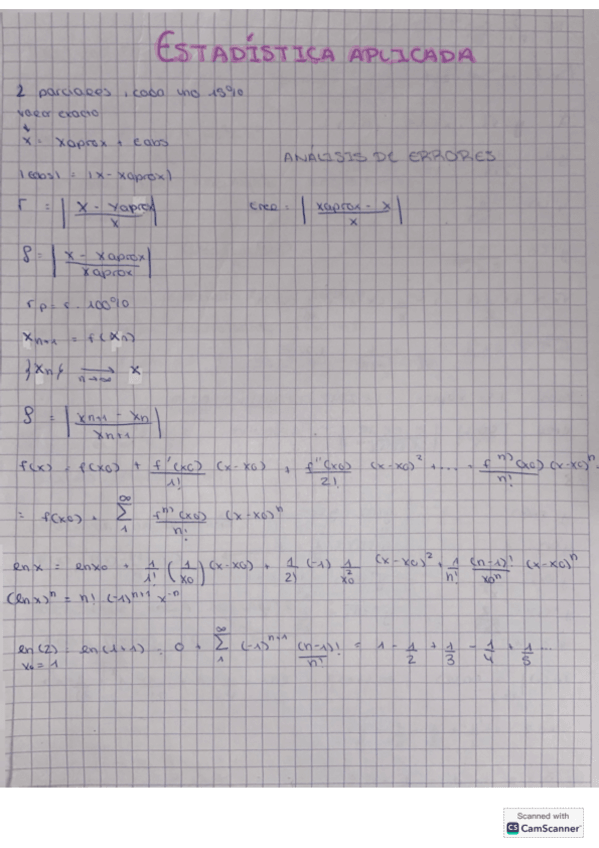 ESTADÍSTICA APLICADA
2 parciales, cada uno 15%
valor exacto
↓
x = xaprox + eabs
ANÁLISIS DE ERRORES
|eabs| = |x - xaprox|
r = | (x - xaprox)/x |
erea = | (xaprox - x)/x |
ρ = | (x - xaprox)/xaprox |
rp = r · 100%
xn+1 = f(xn)
{xn} →(n→∞) x
ρ = | (xn+1 - xn)/xn+1 |
f(x) = f(x0) + f'(x0)/1! (x-x0) + f''(x0)/2! (x-x0)² + .... + fⁿ⁾(x0)/n! (x-x0)ⁿ
= f(x0) + ∞Σ1 fⁿ⁾(x0)/n! (x-x0)ⁿ
ln x = ln x0 + 1/1! (1/x0) (x-x0) + 1/2! (-1) 1/x0² (x-x0)² + 1/n! (n-1)!/x0ⁿ (x-x0)ⁿ
(ln x)ⁿ = n! (-1)ⁿ⁺¹ x⁻ⁿ
ln(2) = ln(1+1) = 0 + ∞Σ1 (-1)ⁿ⁺¹ (n-1)!/n! = 1 - 1/2 + 1/3 - 1/4 + 1/5 ...
x0 = 1
Scanned with
CS CamScanner